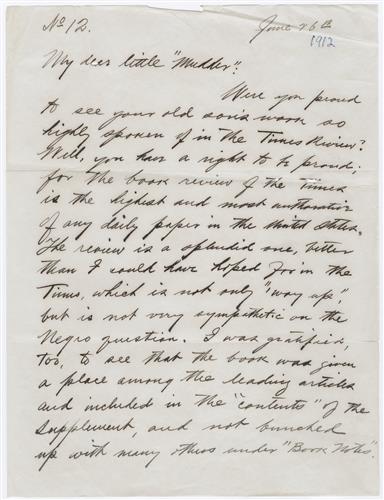 No 12.
June 26th
1912
My dear little "Mudder":
Were you proud
to see your old son's work so
highly spoken of in the Times Review?
Well, you have a right to be proud;
for the book review of the Times
is the highest and most authoritative
of any daily paper in the United States.
The review is a splendid one, better
than I could have hoped for in the
Times, which is not only "way up",
but is not very sympathetic on the
Negro question. I was gratified,
too, to see that the book was given
a place among the leading articles
and included in the "contents" of the
supplement, and not bunched
up with many others under "Book Notes".